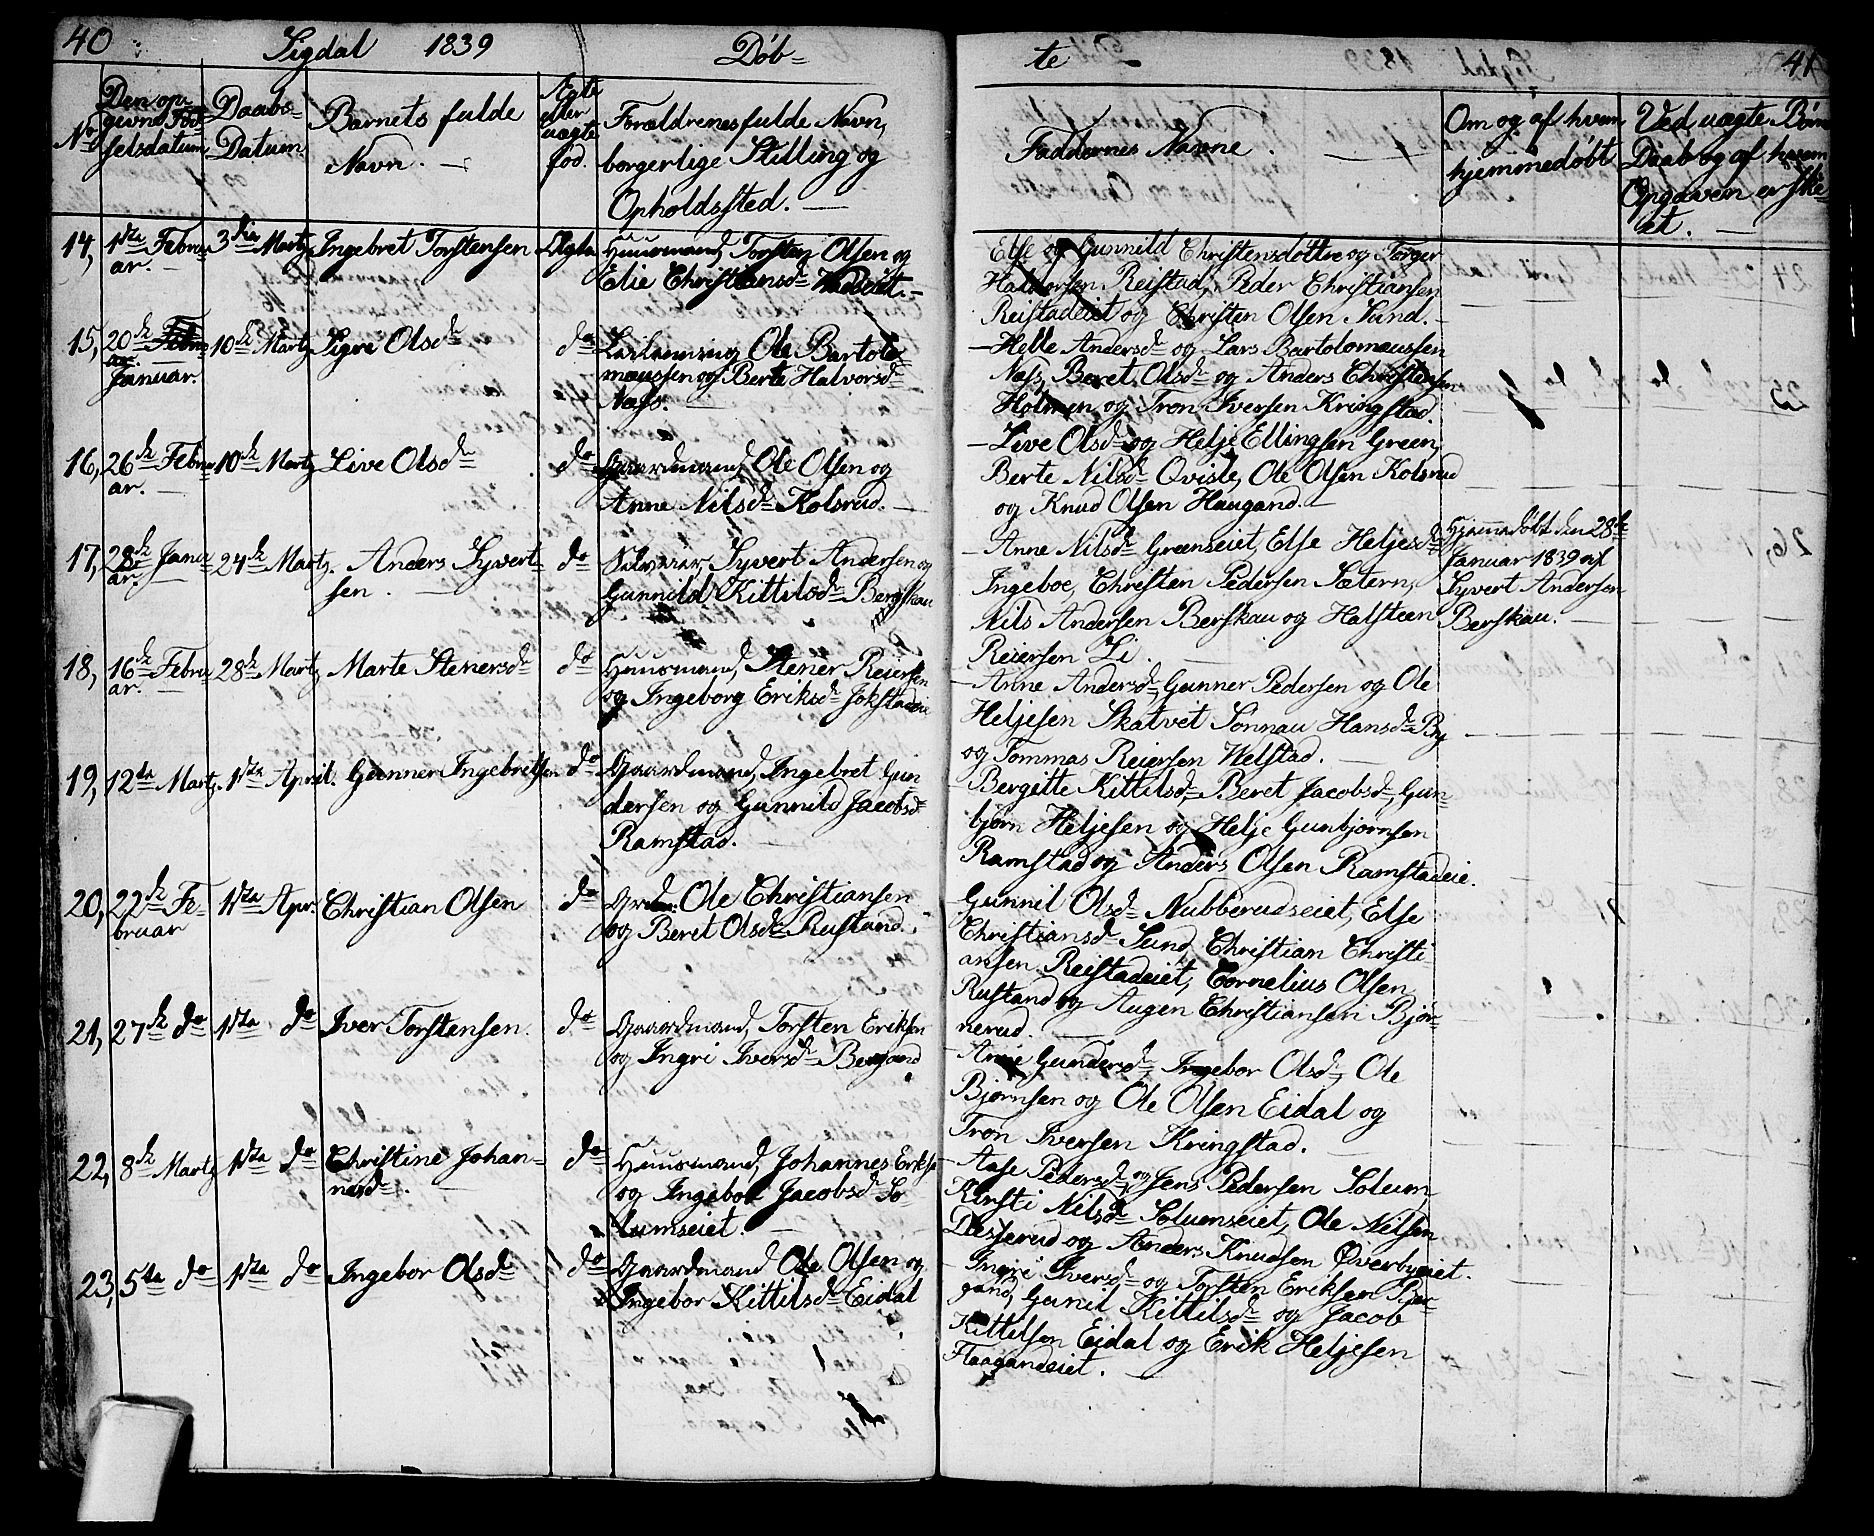 40 Sigdal 1839 Döb=
No
Den op=
givne Föd=
selsdatum
Daabs=
Datum.
Barnets fulde
Navn. —
Ægte
eller
uægte
fød.
Forældrenes fulde Navn,
borgerlige Stilling og
Opholdssted. —
14, 1ste Febru 3die Martz Ingebret Torstensen Ægte Huusmand, Torsten Olsen og
ar. — Elie Christiansd
15, 20de Febru 10de Martz Sigri Olsd do Ole Bartolo
ar.
Januar. mæussen og Berte Halvorsd
Næss.
16, 26de Febru 10de Martz Live Olsd do Gaardmand, Ole Olsen og
ar. — Anne Nilsd Kolsrud. —
17, 28de Janu 24de Martz. Anders Syvert= do Selveier, Syvert Andersen og
ar. — sen. — Gunnild Kittilsd Bergskau
18, 16de Febru 28de Martz Marte Stenersd do Huusmand, Stener Reiersen
ar. — og Ingeborg Eriksd Jokstadeie
19, 12te Martz. 1ste April. Gunner Ingebretsen do Gaardmand, Ingebret Gun
dersen og Gunnild Jacobsd
Ramstad. —
20, 22de Fe= 1ste Apr. Christian Olsen do Grdm: Ole Christiansen
bruar og Beret Olsd Rustand.
21, 27de do 1ste do Iver Torstensen. do Gaardmand, Torsten Eriksen
og Ingri Iversd Bergand
22, 8de Martz 1ste do Christine Johan= do Huusmand, Johannes Erikse
nesd. — og Ingebor Jacobsd So
lumseiet. —
23, 5te do 1ste do Ingebor Olsd do Gaardmand Ole Olsen og
Ingebor Kittilsd Eidal
te 41
Faddernes Navne. —
Om og af hvem
hjemmedøbt
Ved uægte Børn
Daab og af hvem
Opgaven er ske=
et. —
Else og Gunnild Christensdøttre og Torger
Haldorsen Reistad, Peder Christiansen
Reistadeiet og Christen Olsen Sund. —
— Helle Andersd og Lars Bartolomæussen
Næss, Beret Olsd og Anders Christensen
Holmen og Tron Iversen Kringstad.
— Live Olsd og Helje Ellingsen Green,
Berte Nilsd Qvisle, Ole Olsen Kolsrud
og Knud Olsen Haugand. —
— Anne Nilsd Greenseiet, Else Heljesd
Ingeboe, Christen Pedersen Sætern,
Nils Andersen Berskau og Halsteen
Reiersen Li. —
Hjemmedøbt den 28de
Januar 1839 af
Syvert Andersen
Berskau. —
— Anne Andersd, Gunner Pedersen og Ole
Heljesen Skatvet Sønnau Hansd By
og Tommas Reiersen Welstad. —
— Bergitte Kittilsd, Beret Jacobsd, Gun=
bjørn Heljesen og Helje Gunbjørnsen
Ramstad og Anders Olsen Ramstadeie.
Gunnil Olsd Nubberudseiet, Else
Christiansd Sund, Christian Christi=
ansen Reistadeiet, Cornelius Olsen
Rustand og Augen Christiansen Bjør=
nerud. —
— Anne Gundersd, Ingebor Olsd, Ole
Bjørnsen og Ole Olsen Eidal og
Tron Iversen Kringstad. —
— Aase Pedersd og Jens Pedersen Solum,
Kirsti Nilsd Solumseiet, Ole Nilsen
og Anders Knudsen Øverbyeiet.
— Ingri Iversd og Torsten Eriksen Ber=
gand, Gunil Kittilsd og Jacob
Kittelsen Eidal og Erik Heljesen
Haagandeiet. —